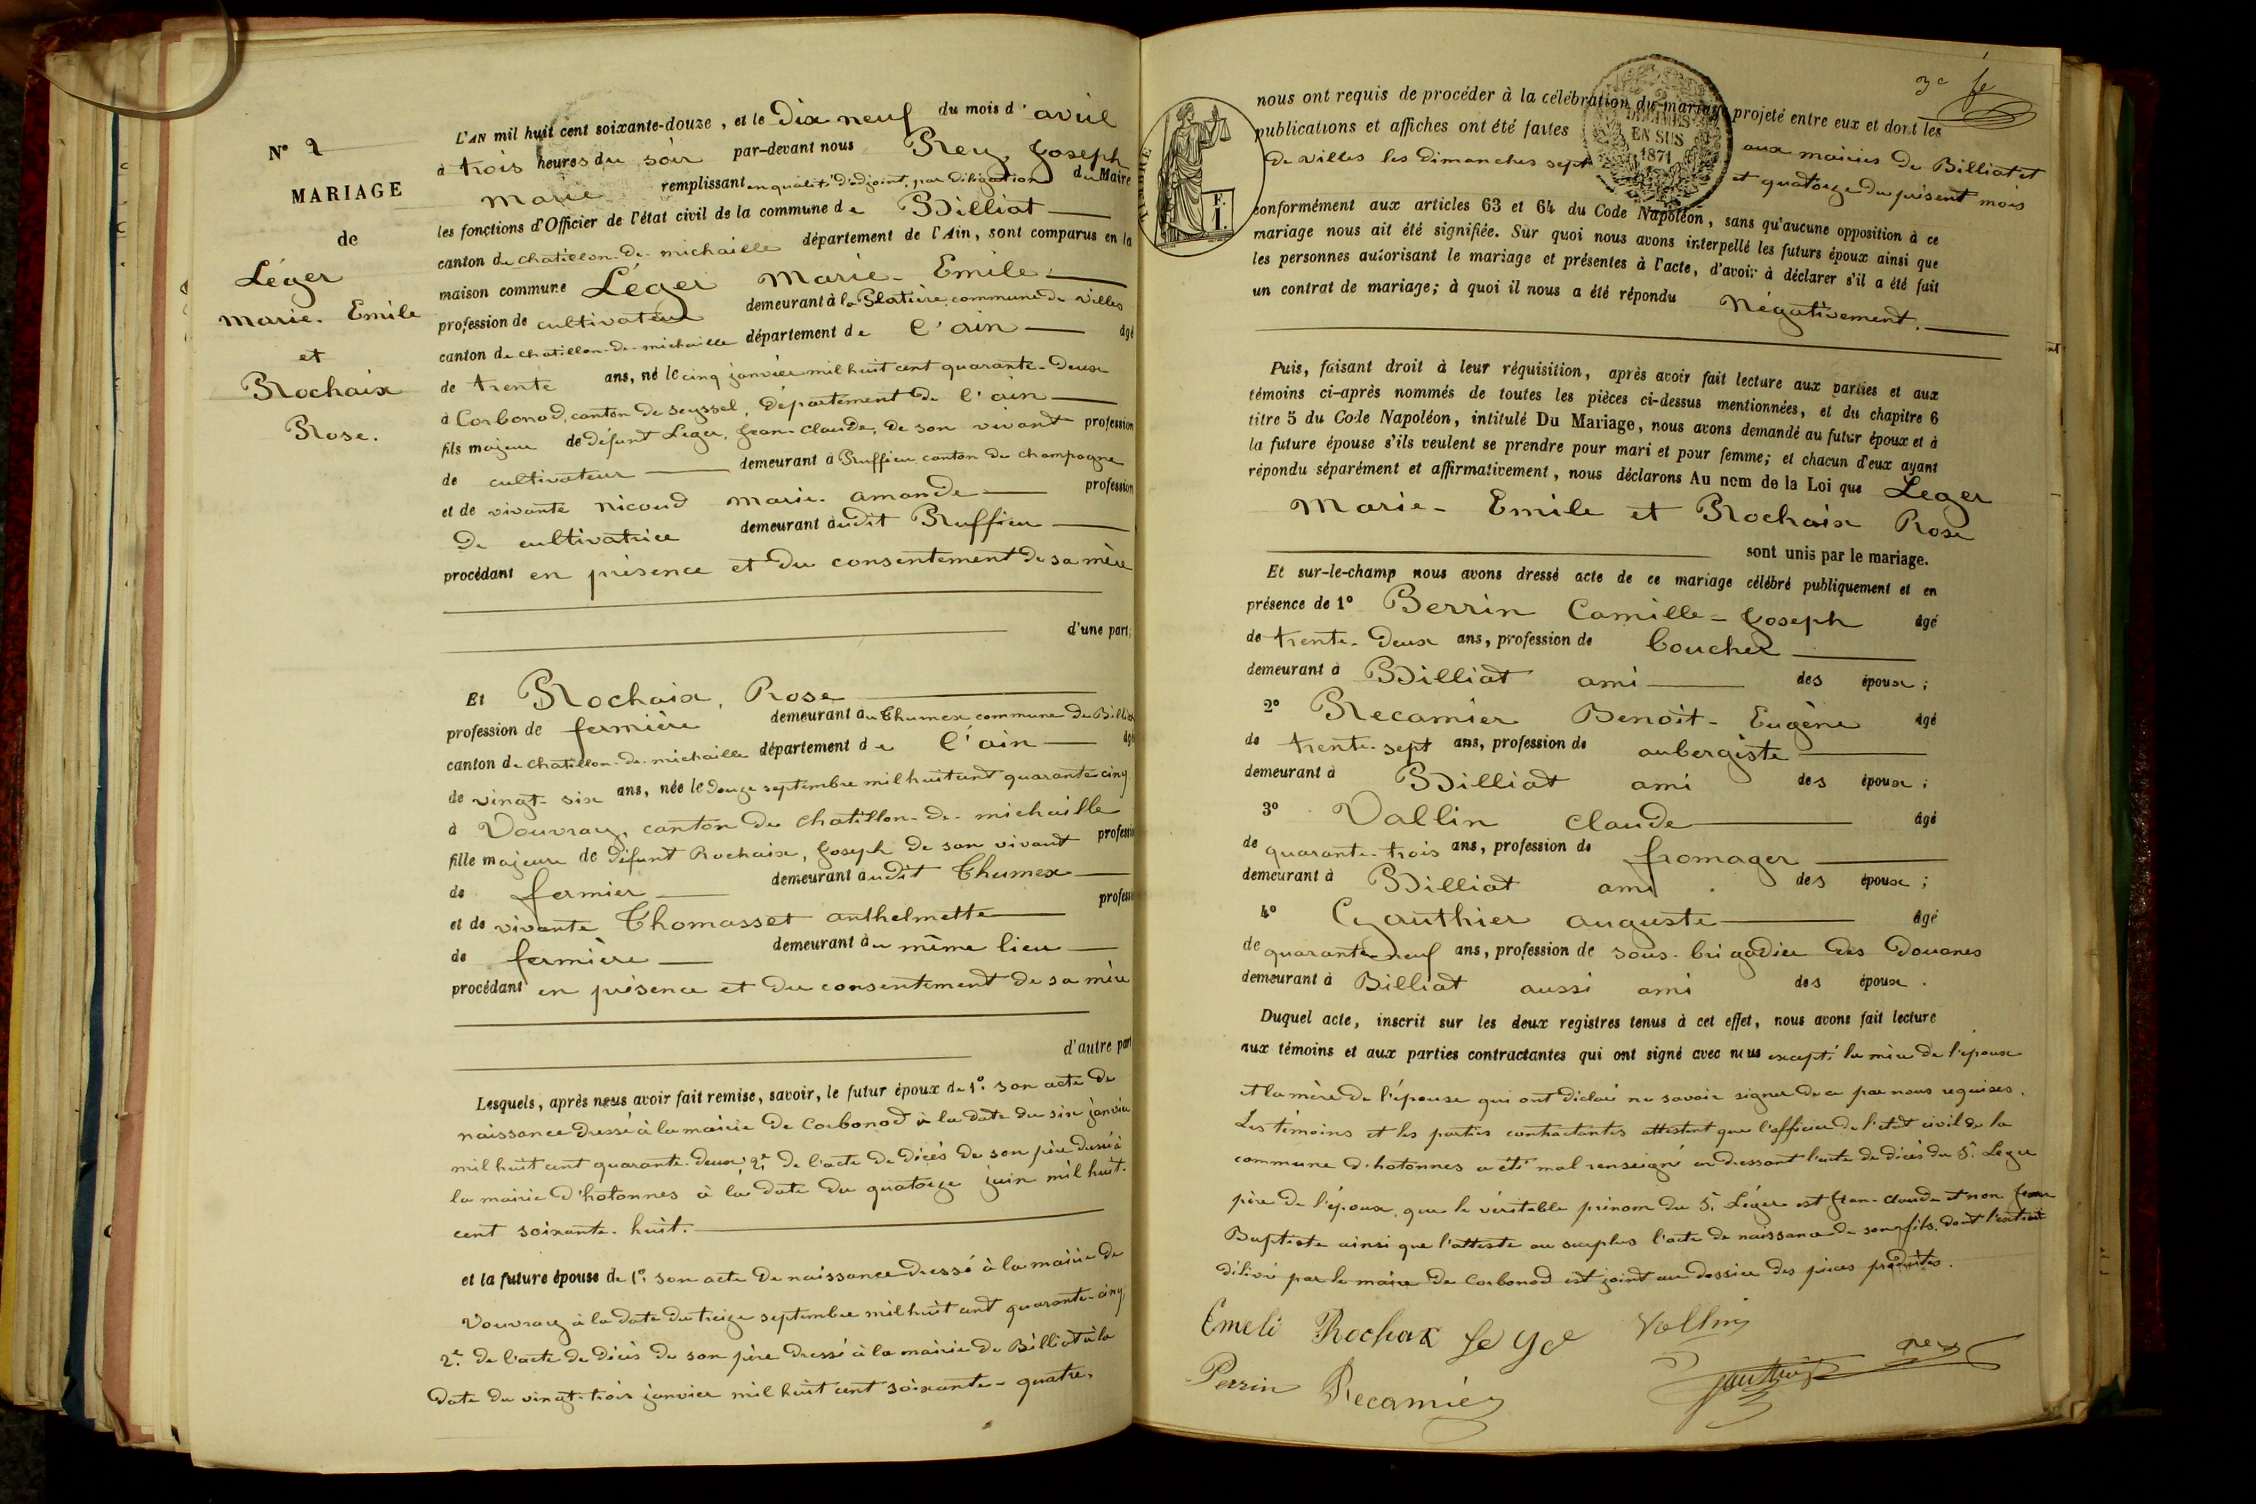 N° 2
MARIAGE
de
Léger
Marie-Emile
et
Rochaix
Rose.
L'AN mil huit cent soixante-douze, et le dix neuf du mois d'avril
à trois heures du soir par-devant nous Rey, Joseph
Marie remplissant en qualité d'adjoint, par délégation du Maire
les fonctions d'Officier de l'état civil de la commune de Billiat
canton de Chatillon-de-michaille département de l'Ain, sont comparus en la
maison commune Léger Marie-Emile
profession de cultivateur demeurant à la Platière commune de Villes
canton de Chatillon-de-michaille département de l'ain âgé
de trente ans, né le cinq janvier mil huit cent quarante-deux
à Corbonod, canton de Seyssel, département de l'ain
fils majeur de défunt Léger, Jean-Claude, de son vivant profession
de cultivateur demeurant à Ruffieu canton de Champagne
et de vivante Nicoud Marie-amande profession
de cultivatrice demeurant audit Ruffieu
procédant en présence et du consentement de sa mère
d'une part;
Et Rochaix, Rose
profession de fermière demeurant au Thumex commune de Billiat
canton de Chatillon-de-michaille département de l'ain âgé
de vingt-six ans, née le douze septembre mil huit cent quarante cinq
à Vouvray, canton de Chatillon-de-michaille
fille majeure de défunt Rochaix, Joseph de son vivant profession
de fermier demeurant audit Thumex
et de vivante Thomasset anthelmette profession
de fermière demeurant au même lieu
procédant en présence et du consentement de sa mère
d'autre part
Lesquels, après nous avoir fait remise, savoir, le futur époux de 1° son acte de
naissance dressé à la mairie de Corbonod à la date du six janvier
mil huit cent quarante-deux; 2° de l'acte de décès de son père dressé à
la mairie d'hotonnes à la date du quatorze juin mil huit-
cent soixante-huit.
et la future épouse de 1° son acte de naissance dressé à la mairie de
Vouvray à la date du treize septembre mil huit cent quarante-cinq
2° de l'acte de décès de son père dressé à la mairie de Billiat à la
date du vingt-trois janvier mil huit cent soixante-quatre.
3e fe
2 DÉCIMES EN SUS 1871
F. 1.
nous ont requis de procéder à la célébration du mariage projeté entre eux et dont les
publications et affiches ont été faites aux mairies de Billiat et
de Villes les dimanches sept et quatorze du présent mois
conformément aux articles 63 et 64 du Code Napoléon, sans qu'aucune opposition à ce
mariage nous ait été signifiée. Sur quoi nous avons interpellé les futurs époux ainsi que
les personnes autorisant le mariage et présentes à l'acte, d'avoir à déclarer s'il a été fait
un contrat de mariage; à quoi il nous a été répondu Négativement.
Puis, faisant droit à leur réquisition, après avoir fait lecture aux parties et aux
témoins ci-après nommés de toutes les pièces ci-dessus mentionnées, et du chapitre 6
titre 5 du Code Napoléon, intitulé Du Mariage, nous avons demandé au futur époux et à
la future épouse s'ils veulent se prendre pour mari et pour femme; et chacun d'eux ayant
répondu séparément et affirmativement, nous déclarons Au nom de la Loi que Léger
Marie-Emile et Rochaix Rose
sont unis par le mariage.
Et sur-le-champ nous avons dressé acte de ce mariage célébré publiquement et en
présence de 1° Perrin Camille-Joseph âgé
de trente-deux ans, profession de boucher
demeurant à Billiat ami des époux;
2° Recamier Benoit-Eugène âgé
de trente-sept ans, profession de aubergiste
demeurant à Billiat ami des époux;
3° Vallin Claude âgé
de quarante-trois ans, profession de fromager
demeurant à Billiat ami des époux;
4° Gauthier auguste âgé
de quarante-neuf ans, profession de sous-brigadier des Douanes
demeurant à Billiat aussi ami des époux.
Duquel acte, inscrit sur les deux registres tenus à cet effet, nous avons fait lecture
aux témoins et aux parties contractantes qui ont signé avec nous excepté la mère de l'époux
et la mère de l'épouse qui ont déclaré ne savoir signer de ce par nous requises.
Les témoins et les parties contractantes attestent que l'officier de l'état civil de la
commune d'hotonnes a été mal renseigné en dressant l'acte de décès du Sr. Léger
père de l'époux, que le véritable prénom du Sr. Léger est Jean-Claude et non Jean
Baptiste ainsi que l'atteste au surplus l'acte de naissance de son fils dont l'extrait
délivré par le maire de Corbonod est joint au dossier des pièces produites.
Emeli Rochax Vallin
Rey
Perrin Recamier Gauthier